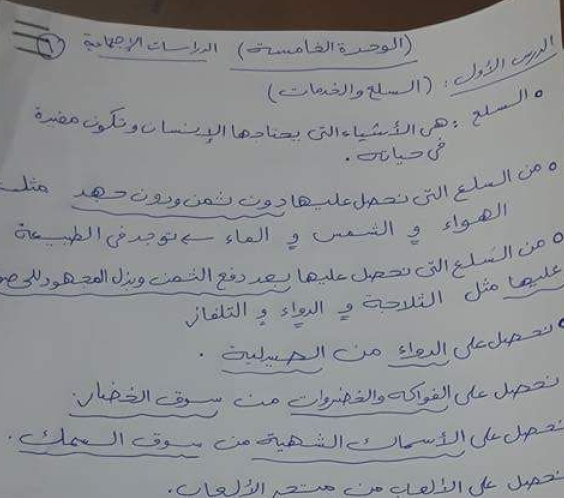 (الوحدة الخامسة) الدراسات الإجتماعية
الدرس الأول: (السلع والخدمات)
السلع: هى الأشياء التى يحتاجها الإنسان وتكون مفيدة
فى حياته.
من السلع التى نحصل عليها دون ثمن ودون جهد مثل
الهواء و الشمس و الماء ← توجد فى الطبيعة
من السلع التى نحصل عليها بعد دفع الثمن وبذل المجهود
عليها مثل الثلاجة و الدواء و التلفاز
نحصل على الدواء من الصيدلية.
نحصل على الفواكه والخضروات من سوق الخضار.
نحصل على الأسماك الشهية من سوق السمك.
نحصل على الألعاب من متجر الألعاب.